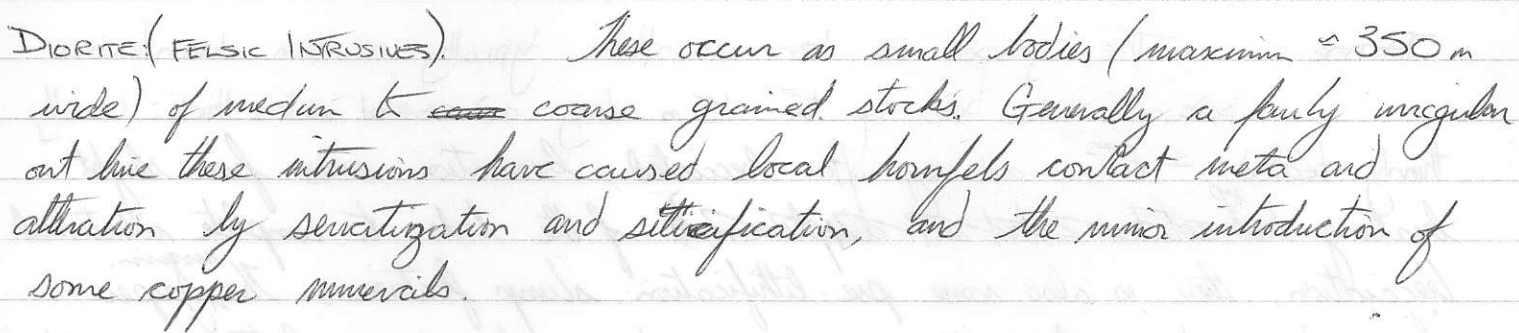 DIORITE:(FELSIC INTRUSIVES). These occur as small bodies (maximum ≈ 350m
wide) of medium to coarse grained stocks. Generally a fairly irregular
out line these intrusions have caused local hornfels contact meta and
alteration by sericitization and silicification, and the minor introduction of
some copper minerals.